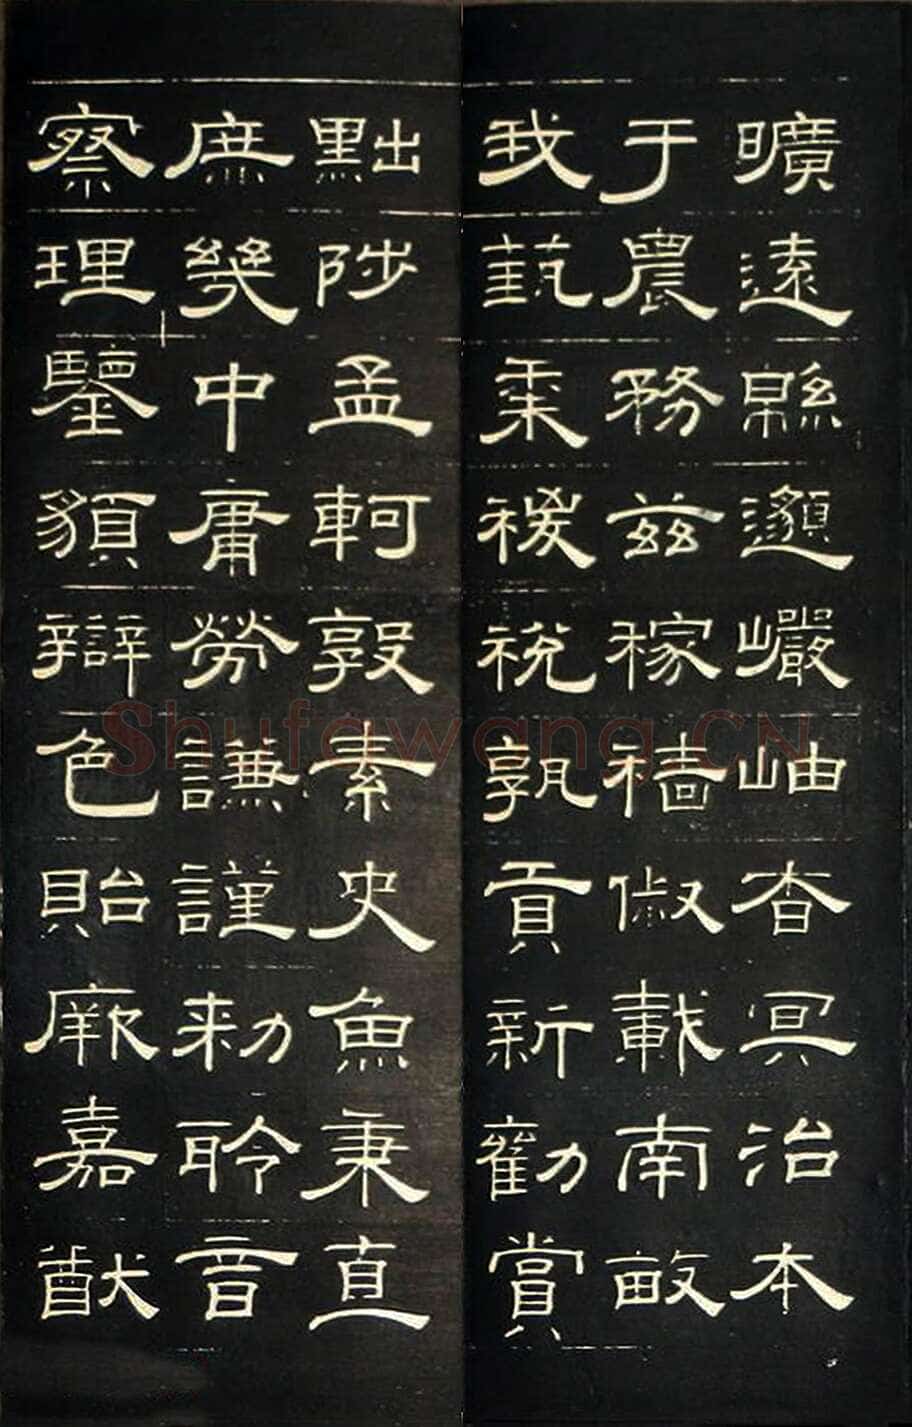 曠遠緜邈巖岫杳冥治本
于農務茲稼穡俶載南畝
我藝黍稷稅孰貢新勸賞
黜陟孟軻敦素史魚秉直
庶幾中庸勞謙謹勑聆音
察理鑒䫉辯色貽厥嘉猷
Shufawang.CN